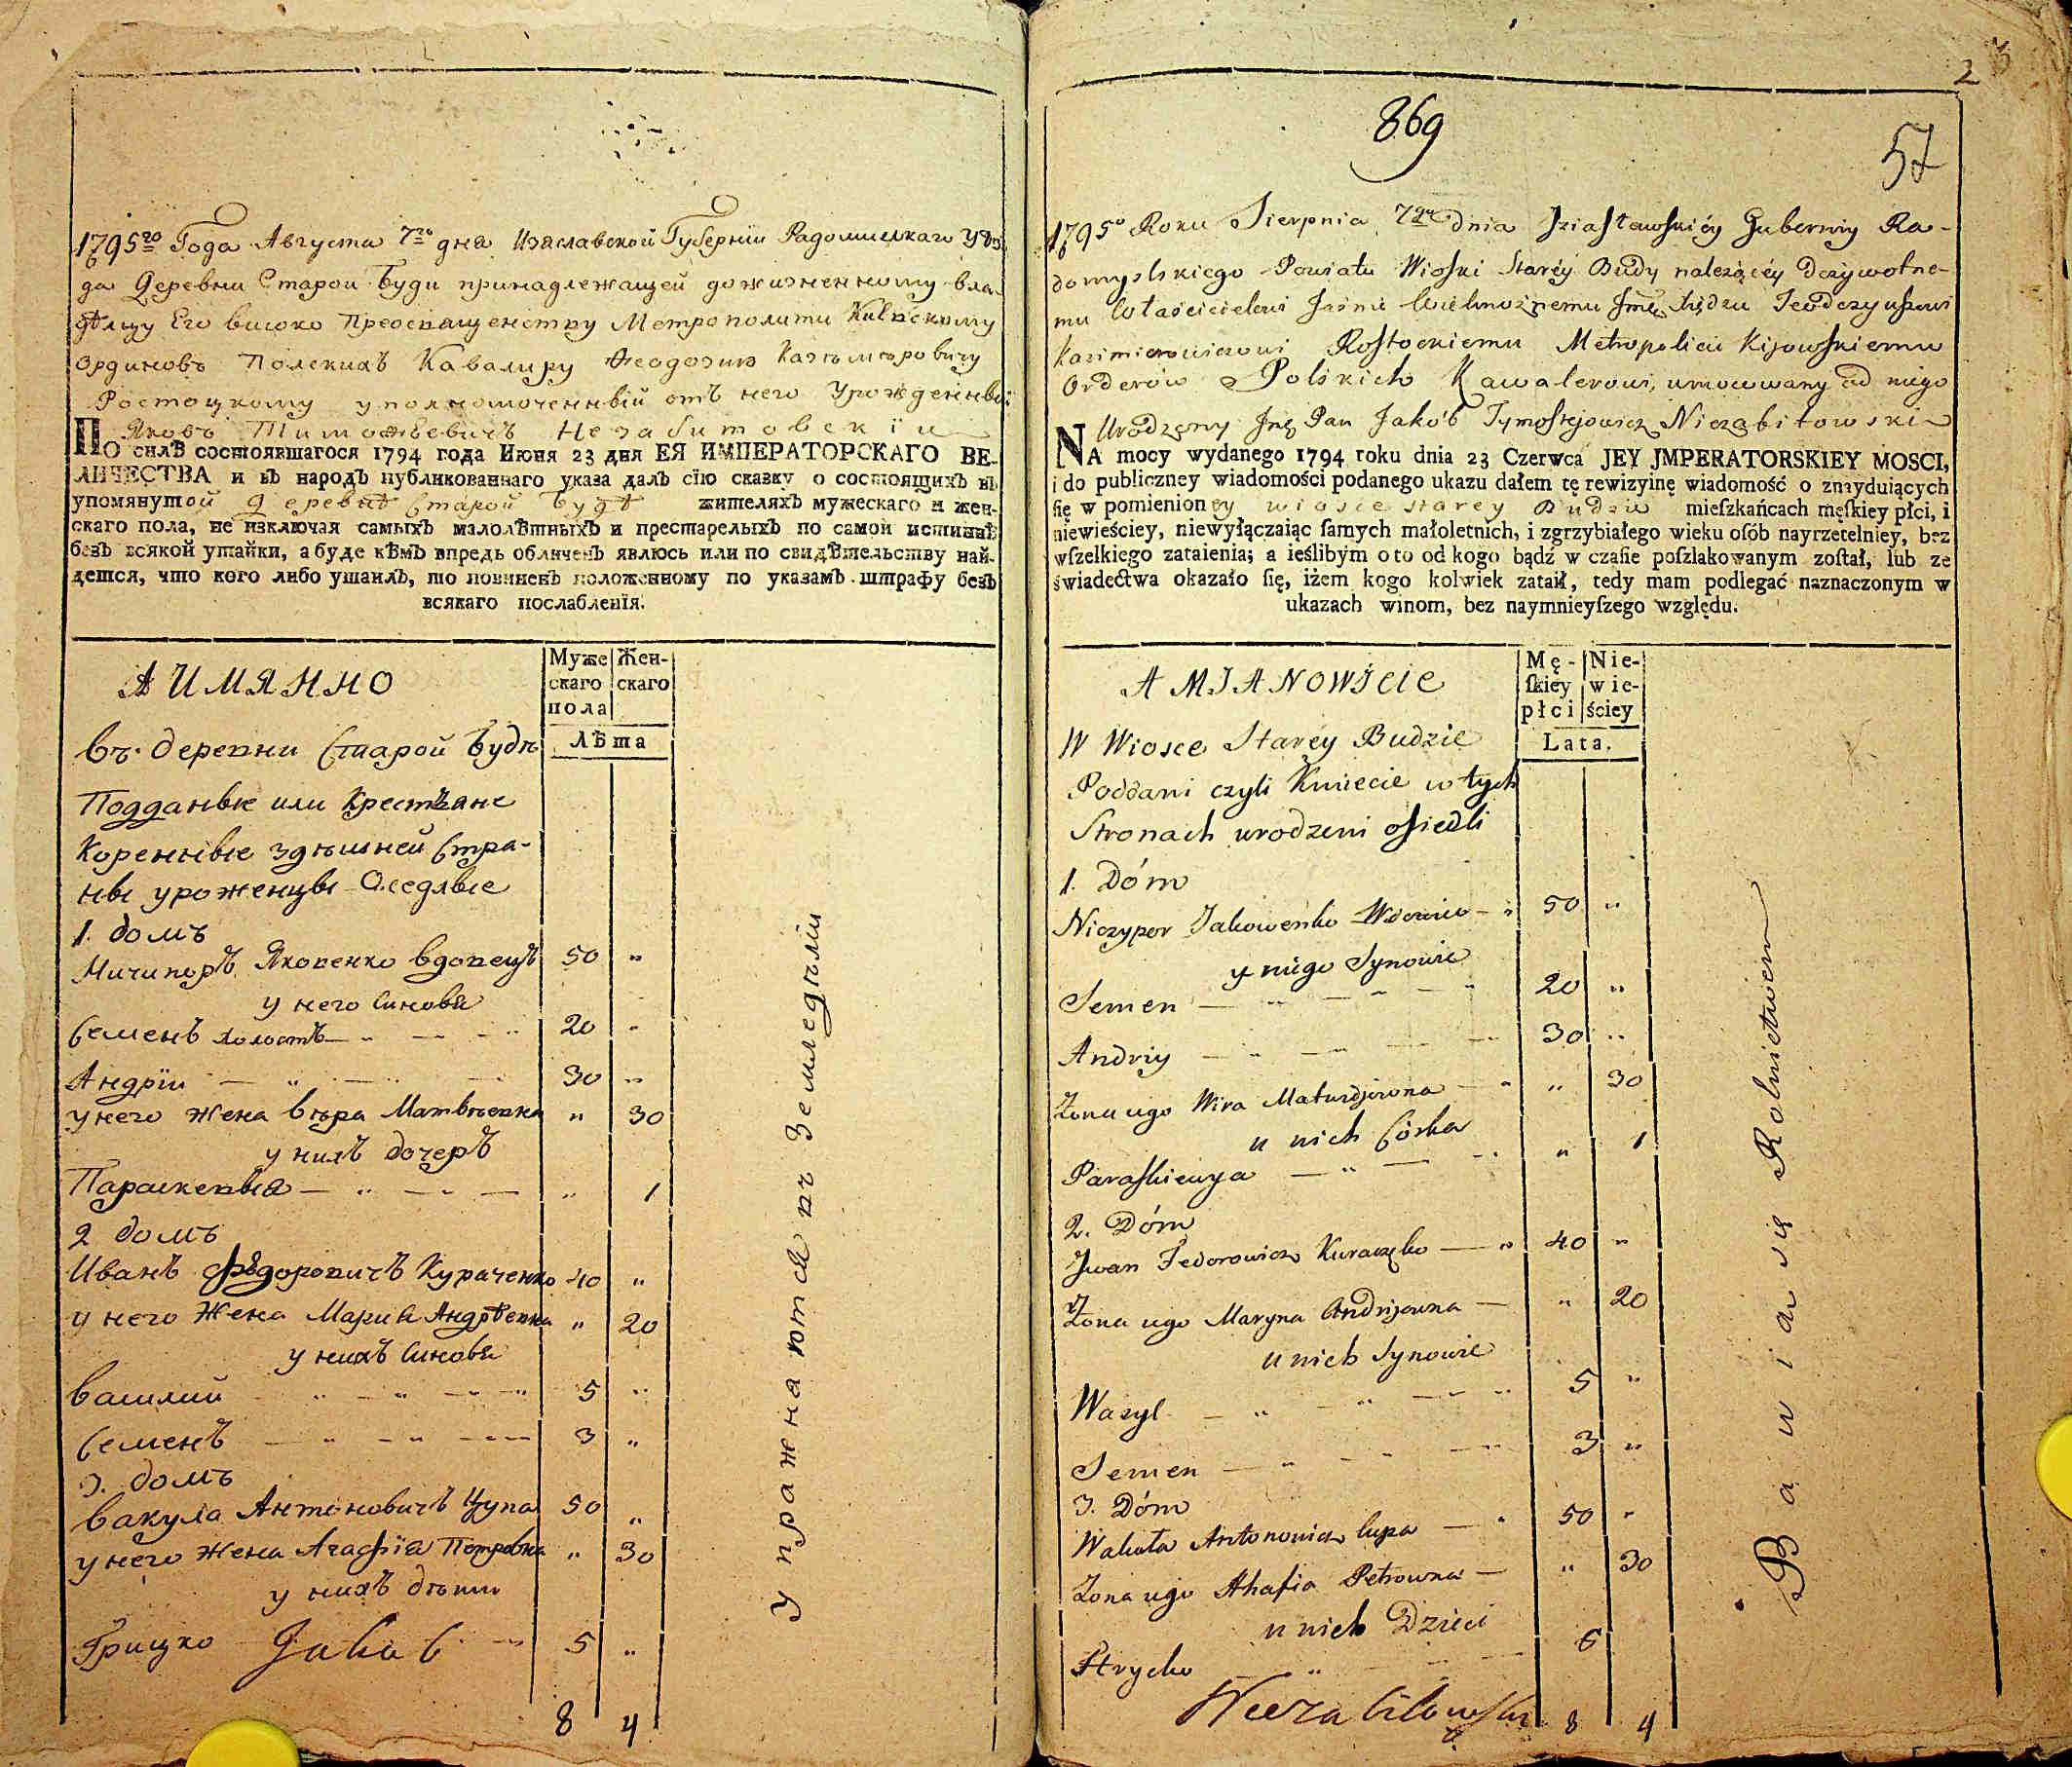 1795го Года Августа 7го дня Изяславской Губернїи Радомислкаго Уѣз
да Деревни Старой Буди принадлежащей дожизненному вла
дѣлцу Его високо Преосвященству Метрополити Киевскому
Ординовъ Полскихъ Кавалиру Феодозию Казъмировичу
Ростоцкому уполномоченный отъ него Урожденный
Яковъ Тимофѣевичъ Незабитовскїи
ПО силѣ состоявшагося 1794 года Июня 23 дня ЕЯ ИМПЕРАТОРСКАГО ВЕ-
ЛИЧЕСТВА и въ народъ публикованнаго указа далъ сїю сказку о состоящихъ въ
упомянутой деревнѣ Старой Будѣ жителяхъ мужескаго и жен-
скаго пола, не изключая самыхъ малолѣтныхъ и престарелыхъ по самой истиннѣ
безъ всякой утайки, а буде кѣмъ впредь обличенъ явлюсь или по свидѣтельству най-
дется, что кого либо утаилъ, то повиненъ положенному по указамъ штрафу безъ
всякаго послабленїя.
А ИМЯННО
Муже
скаго
пола
Жен-
скаго
Лѣта
Въ деревни Старой Будѣ
Подданые или Крестѣяне
Коренные здѣшней Стра-
ны уроженцы Оседлые
1. домъ
Ничипоръ Яковенко вдовецъ 50 "
у него Синовя
Семенъ холостъ — " — — " 20 "
Андрїи — " — " — 30 "
у него жена Вѣра Матвѣевна " 30
у нихъ дочеръ
Параскевия — " — " — " 1
2 домъ
Иванъ Фѣдоровичъ Кураченко 40 "
у него Жена Мария Андрѣевна " 20
у нихъ Синовя
Василий " — " — " 5 "
Семенъ — " — — 3 "
3. домъ
Вакула Антоновичъ Цупа 50 "
у него жена Агафїя Петровна " 30
у нихъ дѣти
Грицко Jakób " 5 "
8 4
Упражнаются въ Земледѣлїи
2
869
57
1795o Roku Sierpnia 7go dnia Jziasławskiéy Guberniy Ra-
domyslskiego Powiatu Wioski Staréy Budy należącéy Dożywotne-
mu Własścicielowi Jaśnie Wielmożnemu Jmć Xiędzu Teodozyuszowi
Kazimierowiczowi Rostockiemu Metropolicie Kijowskiemu
Orderów Polskich Kawalerowi, umocowany od niego
Urodzony Jmć Pan Jakób Tymofiejowicz Niezabitowski
NA mocy wydanego 1794 roku dnia 23 Czerwca JEY JMPERATORSKIEY MOSCI,
i do publiczney wiadomości podanego ukazu dałem tę rewizyinę wiadomość o znayduiących
się w pomienioney wiosce starey Budzie mieſzkańcach męſkiey płci, i
niewieściey, niewyłączaiąc ſamych małoletnich, i zgrzybiałego wieku osób nayrzetelniey, bez
wſzelkiego zataienia; a ieślibym o to od kogo bądź w czaſie poſzlakowanym zoſtał, lub ze
świadectwa okazało ſię, iżem kogo kolwiek zataił, tedy mam podlegać naznaczonym w
ukazach winom, bez naymnieyſzego względu.
A MJANOWJCIE
Mę-
ſkiey
płci
Nie-
wie-
ściey
Lata.
W Wiosce Staréy Budzie
Poddani czyli Kmiecie w tych
Stronach urodzeni osiedli
1. Dóm
Niczypor Jakowenko Wdowiec — " 50 "
u niego Synowie
Semen — " — " — " 20 "
Andriy — " — — — 30 "
Zona jego Wira Matwiejowna — " " 30
u nich Córka
Paraskiewya — " — " " 1
2. Dóm
Jwan Fedorowicz Kuraczęko — " 40 "
Zona jego Maryna Andrijowna — " 20
u nich Synowie
Wasyl — " — " — " 5 "
Semen — " — " — 3 "
3. Dóm
Wakuła Antonowicz Cupa — " 50 "
Zona jego Ahafia Petrowna — " 30
u nich Dzieci
Hrycko " — — 6
Niezabitowski 8 4
Bawia się Rolnictwem